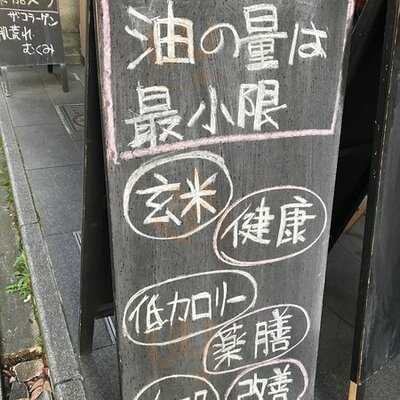 ザコラーゲン
肌荒れ
むくみ
油の量は
最小限
玄米
健康
低カロリー
薬膳
改善